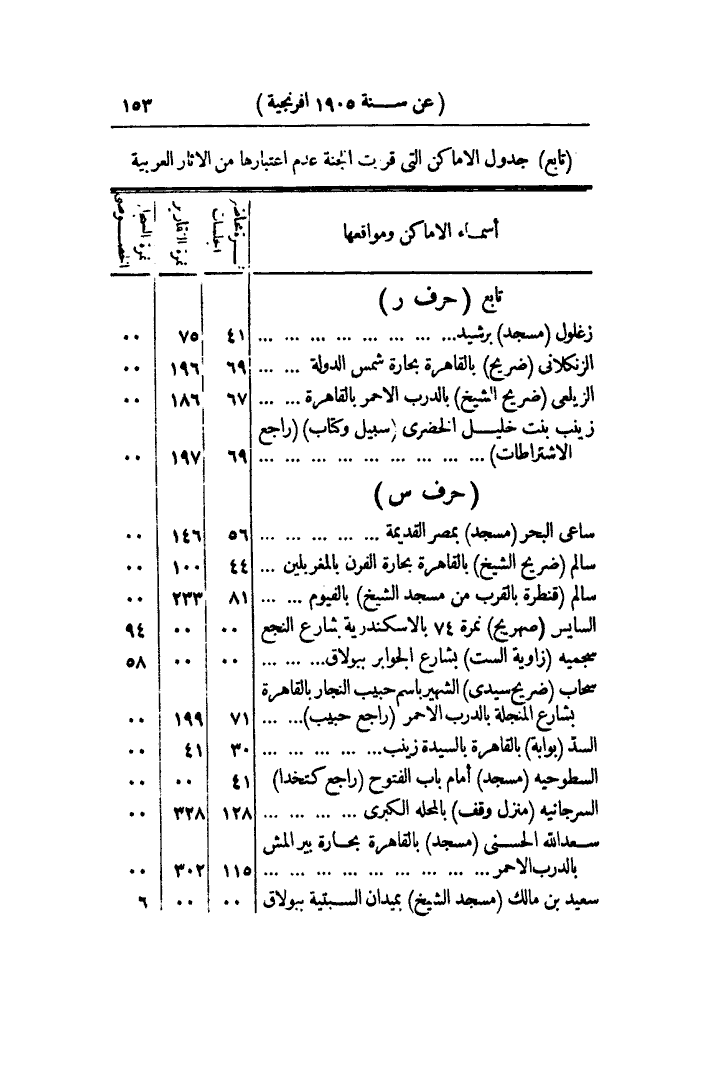 (عن سنة ١٩٠٥ افرنجية) ١٥٣
(تابع) جدول الاماكن التى قررت الجنة عدم اعتبارها من الآثار العربية
أسماء الاماكن ومواقعها نمرة محاضر الجلسات نمرة التقارير نمرة السجل الخصوصى
تابع (حرف ر)
زغلول (مسجد) برشيد... ... ... ... ... ... ... ... ٤١ ٧٥ ٠٠
الزنكلانى (ضريح) بالقاهرة بحارة شمس الدولة ... ... ٦٩ ١٩٦ ٠٠
الزيلعى (ضريح الشيخ) بالدرب الاحمر بالقاهرة ... ... ٦٧ ١٨٦ ٠٠
زينب بنت خليل الخضرى (سبيل وكتاب) (راجع
الاشتراطات) ... ... ... ... ... ... ... ... ... ٦٩ ١٩٧ ٠٠
(حرف س)
ساعى البحر (مسجد) بمصر القديمة ... ... ... ... ... ٥٦ ١٤٦ ٠٠
سالم (ضريح الشيخ) بالقاهرة بحارة الفرن بالمغربلين ... ٤٤ ١٠٠ ٠٠
سالم (قنطرة بالقرب من مسجد الشيخ) بالفيوم ... ... ٨١ ٢٣٣ ٠٠
السايس (صهريج) نمرة ٧٤ بالاسكندرية بشارع النجع ٠٠ ٠٠ ٩٤
سجميه (زاوية الست) بشارع الجوابر ببولاق... ... ... ٠٠ ٠٠ ٥٨
سحاب (ضريح سيدى) الشهير باسم حبيب النجار بالقاهرة
بشارع المنجلة بالدرب الاحمر (راجع حبيب)... ... ٧١ ١٩٩ ٠٠
السدّ (بوابة) بالقاهرة بالسيدة زينب... ... ... ... ... ٣٠ ٤١ ٠٠
السطوحيه (مسجد) أمام باب الفتوح (راجع كتخدا) ٤١ ٠٠ ٠٠
السرجانيه (منزل وقف) بالمحله الكبرى ... ... ... ... ١٢٨ ٣٢٨ ٠٠
سعدالله الحسنى (مسجد) بالقاهرة بحارة بير المش
بالدرب الاحمر ... ... ... ... ... ... ... ... ... ١١٥ ٣٠٢ ٠٠
سعيد بن مالك (مسجد الشيخ) بميدان السبتية ببولاق ٠٠ ٠٠ ٦